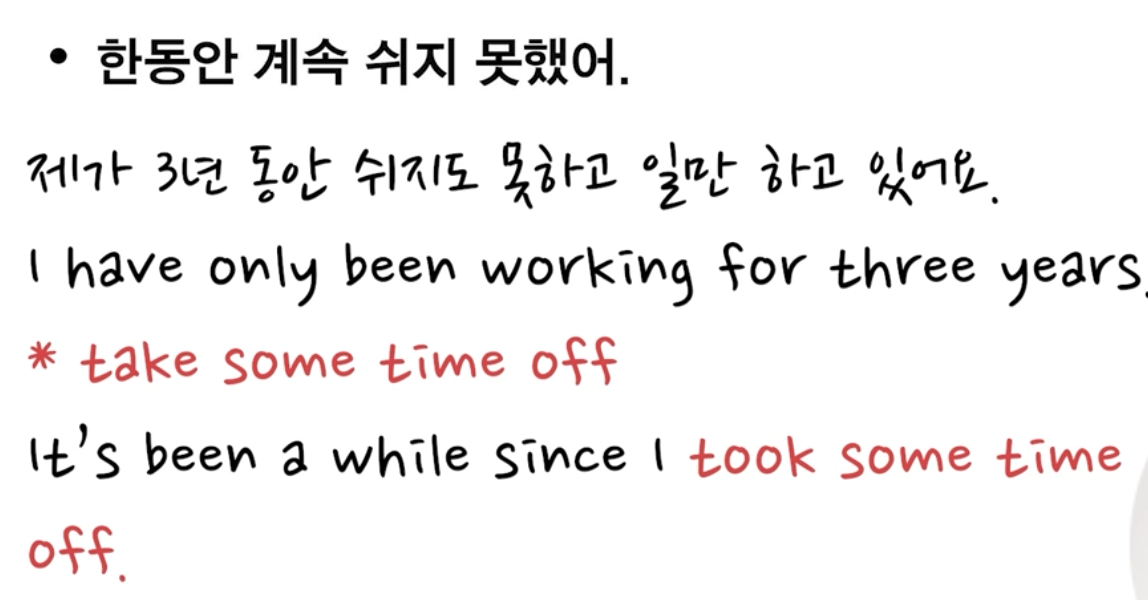 • 한동안 계속 쉬지 못했어.
제가 3년 동안 쉬지도 못하고 일만 하고 있어요.
I have only been working for three years.
* take some time off
It's been a while since I took some time
off.